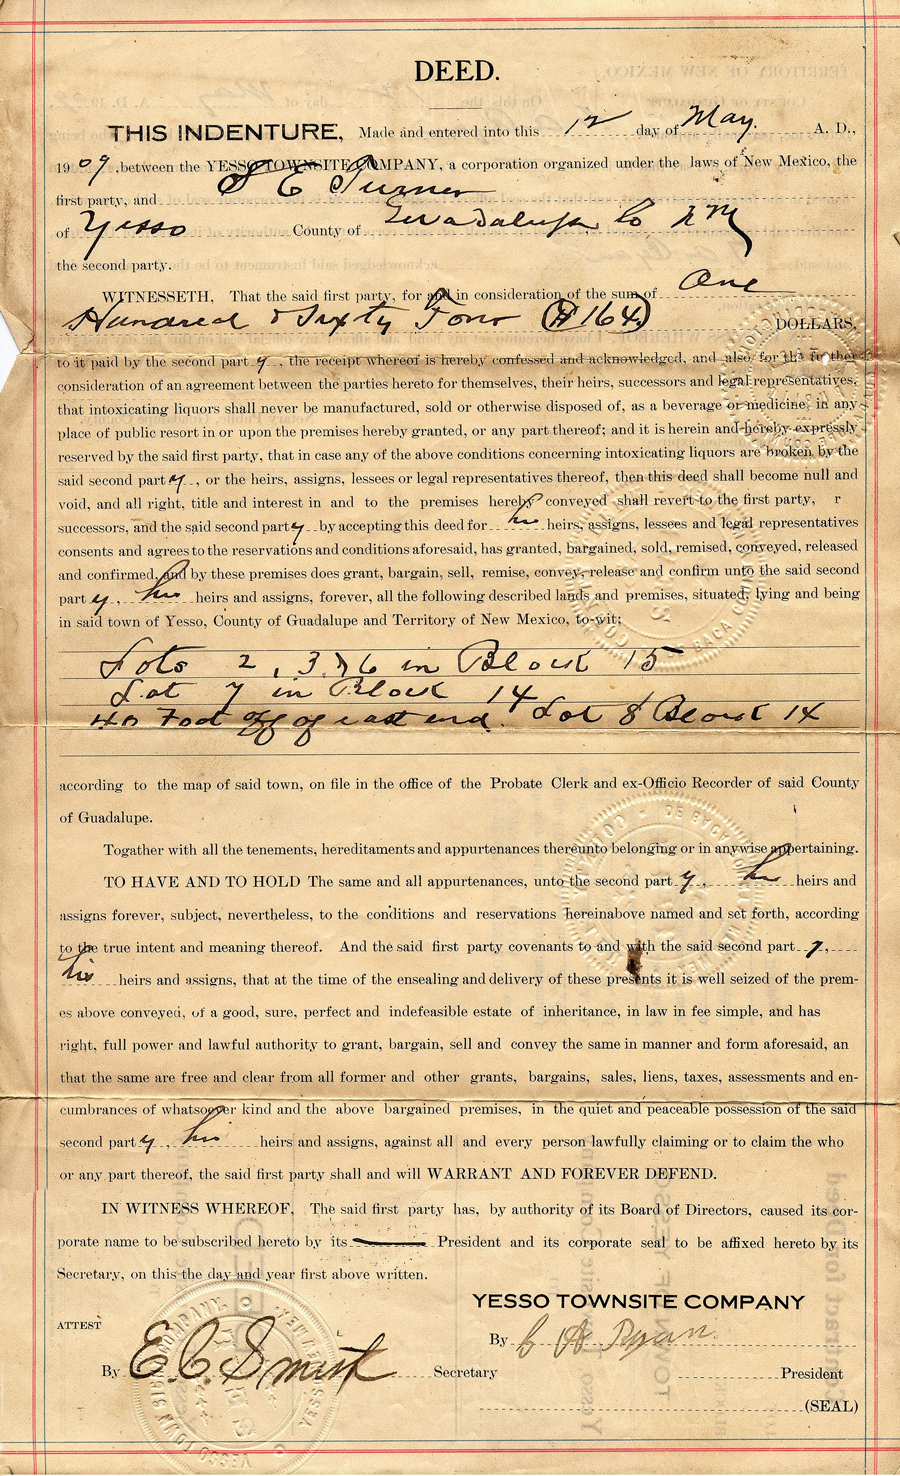 DEED.
THIS INDENTURE, Made and entered into this 12 day of May. A. D.,
1909, between the YESSO TOWNSITE COMPANY, a corporation organized under the laws of New Mexico, the
first party, and S E Turner
of Yesso County of Guadalupe Co N M
the second party.
WITNESSETH, That the said first party, for and in consideration of the sum of One
Hundred & Sixty Four ($164) DOLLARS,
to it paid by the second party, the receipt whereof is hereby confessed and acknowledged, and also for the further
consideration of an agreement between the parties hereto for themselves, their heirs, successors and legal representatives,
that intoxicating liquors shall never be manufactured, sold or otherwise disposed of, as a beverage or medicine, in any
place of public resort in or upon the premises hereby granted, or any part thereof; and it is herein and hereby expressly
reserved by the said first party, that in case any of the above conditions concerning intoxicating liquors are broken by the
said second party, or the heirs, assigns, lessees or legal representatives thereof, then this deed shall become null and
void, and all right, title and interest in and to the premises hereby conveyed shall revert to the first party, r
successors, and the said second party by accepting this deed for his heirs, assigns, lessees and legal representatives
consents and agrees to the reservations and conditions aforesaid, has granted, bargained, sold, remised, conveyed, released
and confirmed, and by these premises does grant, bargain, sell, remise, convey, release and confirm unto the said second
party, his heirs and assigns, forever, all the following described lands and premises, situated, lying and being
in said town of Yesso, County of Guadalupe and Territory of New Mexico, to-wit;
Lots 2, 3 & 6 in Block 15
Lot 7 in Block 14
40 Foot off of east end. Lot 8 Block 14
according to the map of said town, on file in the office of the Probate Clerk and ex-Officio Recorder of said County
of Guadalupe.
Togather with all the tenements, hereditaments and appurtenances thereunto belonging or in anywise appertaining.
TO HAVE AND TO HOLD The same and all appurtenances, unto the second party, his heirs and
assigns forever, subject, nevertheless, to the conditions and reservations hereinabove named and set forth, according
to the true intent and meaning thereof. And the said first party covenants to and with the said second party,
his heirs and assigns, that at the time of the ensealing and delivery of these presents it is well seized of the prem-
es above conveyed, of a good, sure, perfect and indefeasible estate of inheritance, in law in fee simple, and has
right, full power and lawful authority to grant, bargain, sell and convey the same in manner and form aforesaid, an
that the same are free and clear from all former and other grants, bargains, sales, liens, taxes, assessments and en-
cumbrances of whatsoever kind and the above bargained premises, in the quiet and peaceable possession of the said
second party, his heirs and assigns, against all and every person lawfully claiming or to claim the who
or any part thereof, the said first party shall and will WARRANT AND FOREVER DEFEND.
IN WITNESS WHEREOF, The said first party has, by authority of its Board of Directors, caused its cor-
porate name to be subscribed hereto by its President and its corporate seal to be affixed hereto by its
Secretary, on this the day and year first above written.
YESSO TOWNSITE COMPANY
ATTEST
By C A Ryan
By E. C. Smith Secretary
President
(SEAL)